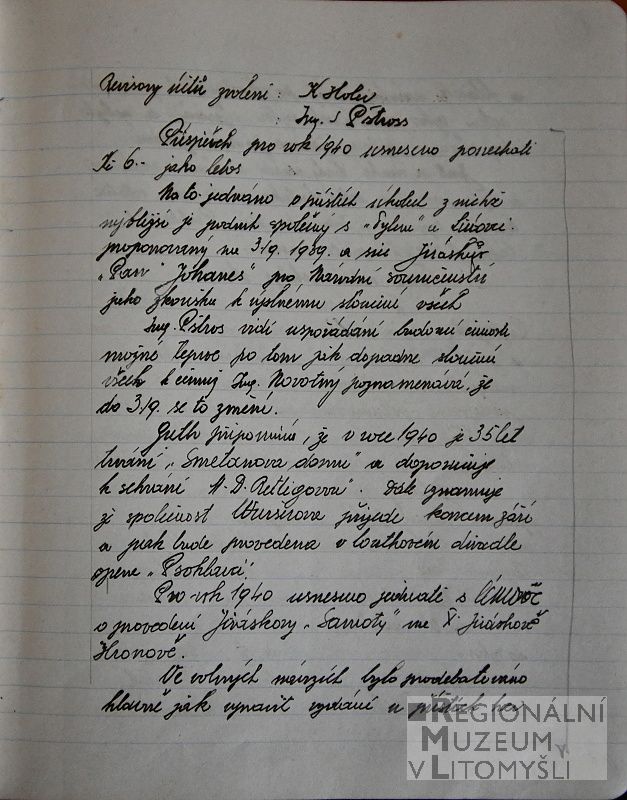 Revisory účtů zvoleni : K Holec
: Ing. J Pštross
Příspěvek pro rok 1940 usneseno ponechati
K 6.- jako letos
Na to jednáno o příštích úkolech z nichž
nejbližší je podnik společný s "Tylem" a
proponovaný na 3./9. 1939. a sic Jiráskův
"Pan Johanes" pro Národní souručenství
jako zkoušku k úplnému sloučení všech
Ing. Pštros vidí uspořádání budoucí činnosti
možné teprve po tom jak dopadne sloučení
všech k čemuž Ing. Novotný poznamenává, že
do 3./9. se to změní.
Guth připomíná, že v roce 1940 je 35 let
trvání "Smetanova domu" a doporučuje
k sehrání "M. D. Rettigovou". Dále oznamuje
že společnost Wurserova přijede koncem září
a pak bude provedena v loutkovém divadle
opera "Psohlavci".
Pro rok 1940 usneseno jednati s
o provedení Jiráskovy "Samoty" na X. Jiráskově
Hronově.
Ve volných návrzích bylo prodebatováno
hlavně jak upravit vydání u příštích her
REGIONÁLNÍ
MUZEUM
V LITOMYŠLI